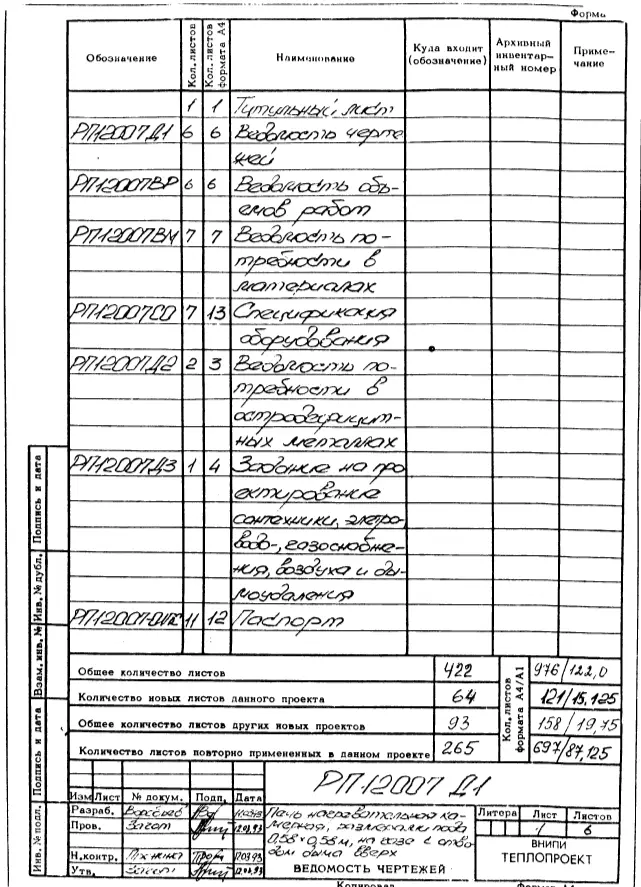 Форма
Обозначение Кол. листов Кол. листов формата А4 Наименование Куда входит (обозначение) Архивный инвентарный номер Примечание
1 1 Титульный лист
РП12007Д1 6 6 Ведомость черте
жей
РП12007ВР 6 6 Ведомость объ-
емов работ
РП12007ВМ 7 7 Ведомость по-
требности в
материалах
РП12007СО 7 13 Спецификация
оборудования
РП12007Д2 2 3 Ведомость по-
требности в
остродефицит-
ных металлах
РП12007Д3 1 4 Задание на про
ектирование
сантехники, электро,
водо-, газоснабже-
ния, воздуха и ды-
моудаления
11 12 Паспорт
Общее количество листов 422
Количество новых листов данного проекта 64
Общее количество листов других новых проектов 93
Количество листов повторно примененных в данном проекте 265
Кол. листов формата А4/А1
976/122,0
121/15,125
158/19,75
697/87,125
Инв. № подл. Подпись и дата Взам. инв. № Инв. № дубл. Подпись и дата
РП12007 Д1
Изм Лист № докум. Подп. Дата
Разраб.
Пров. 12.03.93
Н.контр. 12.03.93
Утв.
Печь нагревательная ка-
мерная, размерами пода
0,58×0,58м, на газе с отво
дом дыма вверх
ВЕДОМОСТЬ ЧЕРТЕЖЕЙ
Литера Лист Листов
1 6
ВНИПИ
ТЕПЛОПРОЕКТ
Копировал Формат А4